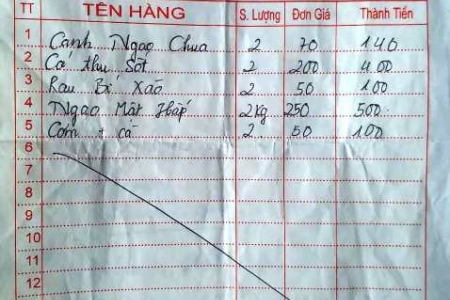 TT TÊN HÀNG S. Lượng Đơn Giá Thành Tiền
1 Canh Ngao Chua 2 70 140
2 Cá thu Sốt 2 200 400
3 Rau Bí Xào 2 50 100
4 Ngao Mật Hấp 2kg 250 500
5 Cơm + cà 2 50 100
6
7
8
9
10
11
12